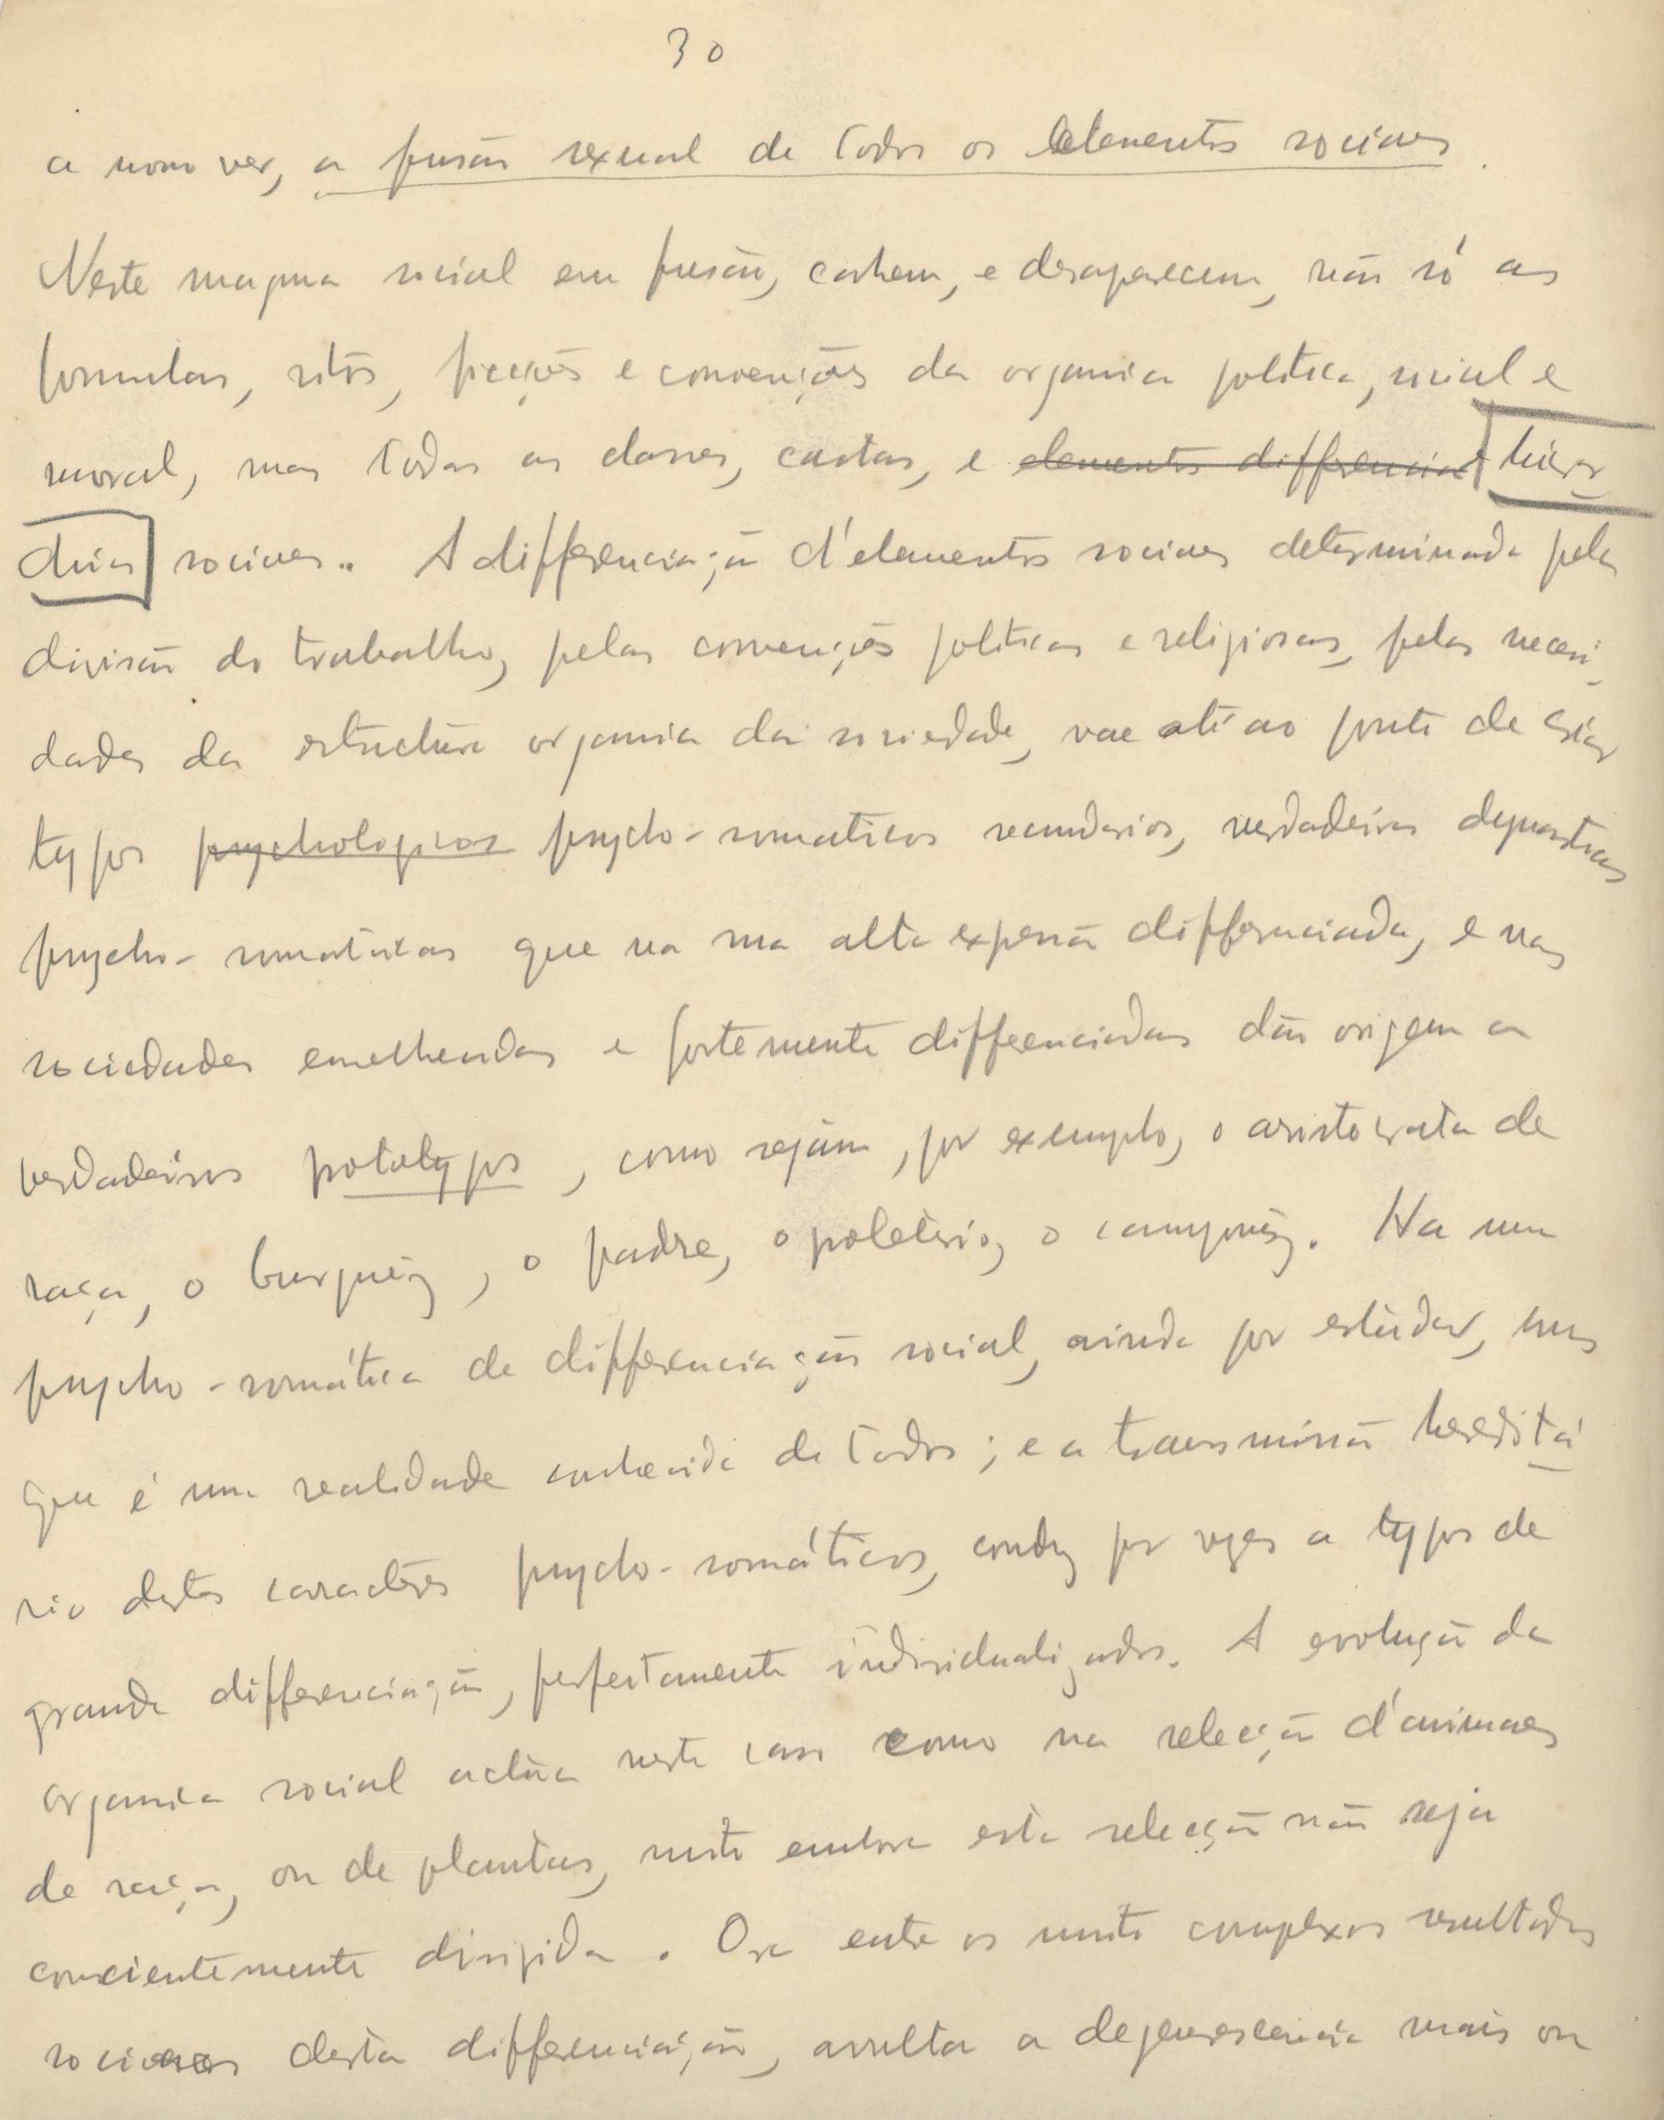 30
a nosso ver, a fusão sexual de todos os elementos sociaes.
Neste magma social em fusão, cahem, e desaparecem, não só as
formulas, ritos, ficções e convenções da organica politica, social e
moral, mas todas as classes, castas, e elementos differenciaes hierar
chias sociaes.. A differenciação d'elementos sociaes determinada pela
divisão do trabalho, pelas convenções politicas e religiosas, pelas necessi
dades da estructura organica da sociedade, vae até ao ponto de criar
typos psychologicos psycho-somaticos secundarios, verdadeiras dynastias
psycho-somaticas que na sua alta expressão differenciada, e nas
sociedades envelhecidas e fortemente differenciadas dão origem a
verdadeiros prototypos, como sejam, por exemplo, o aristocrata de
raça, o burguêz, o padre, o proletário, o camponêz. Ha uma
psycho-somática de differenciação social, ainda por estudar, mas
que é uma realidade conhecida de todos; e a transmissão hereditá
ria destes caractéres psycho-somáticos, conduz por vezes a typos de
grande differenciação, perfeitamente individualizados. A evolução da
organica social actúa neste caso como na selecção d'animaes
de raça, ou de plantas, muito embora esta selecção não seja
conscientemente dirigida. Ora entre os muito complexos resultados
sociaes desta differenciação, avulta a degenerescencia mais ou